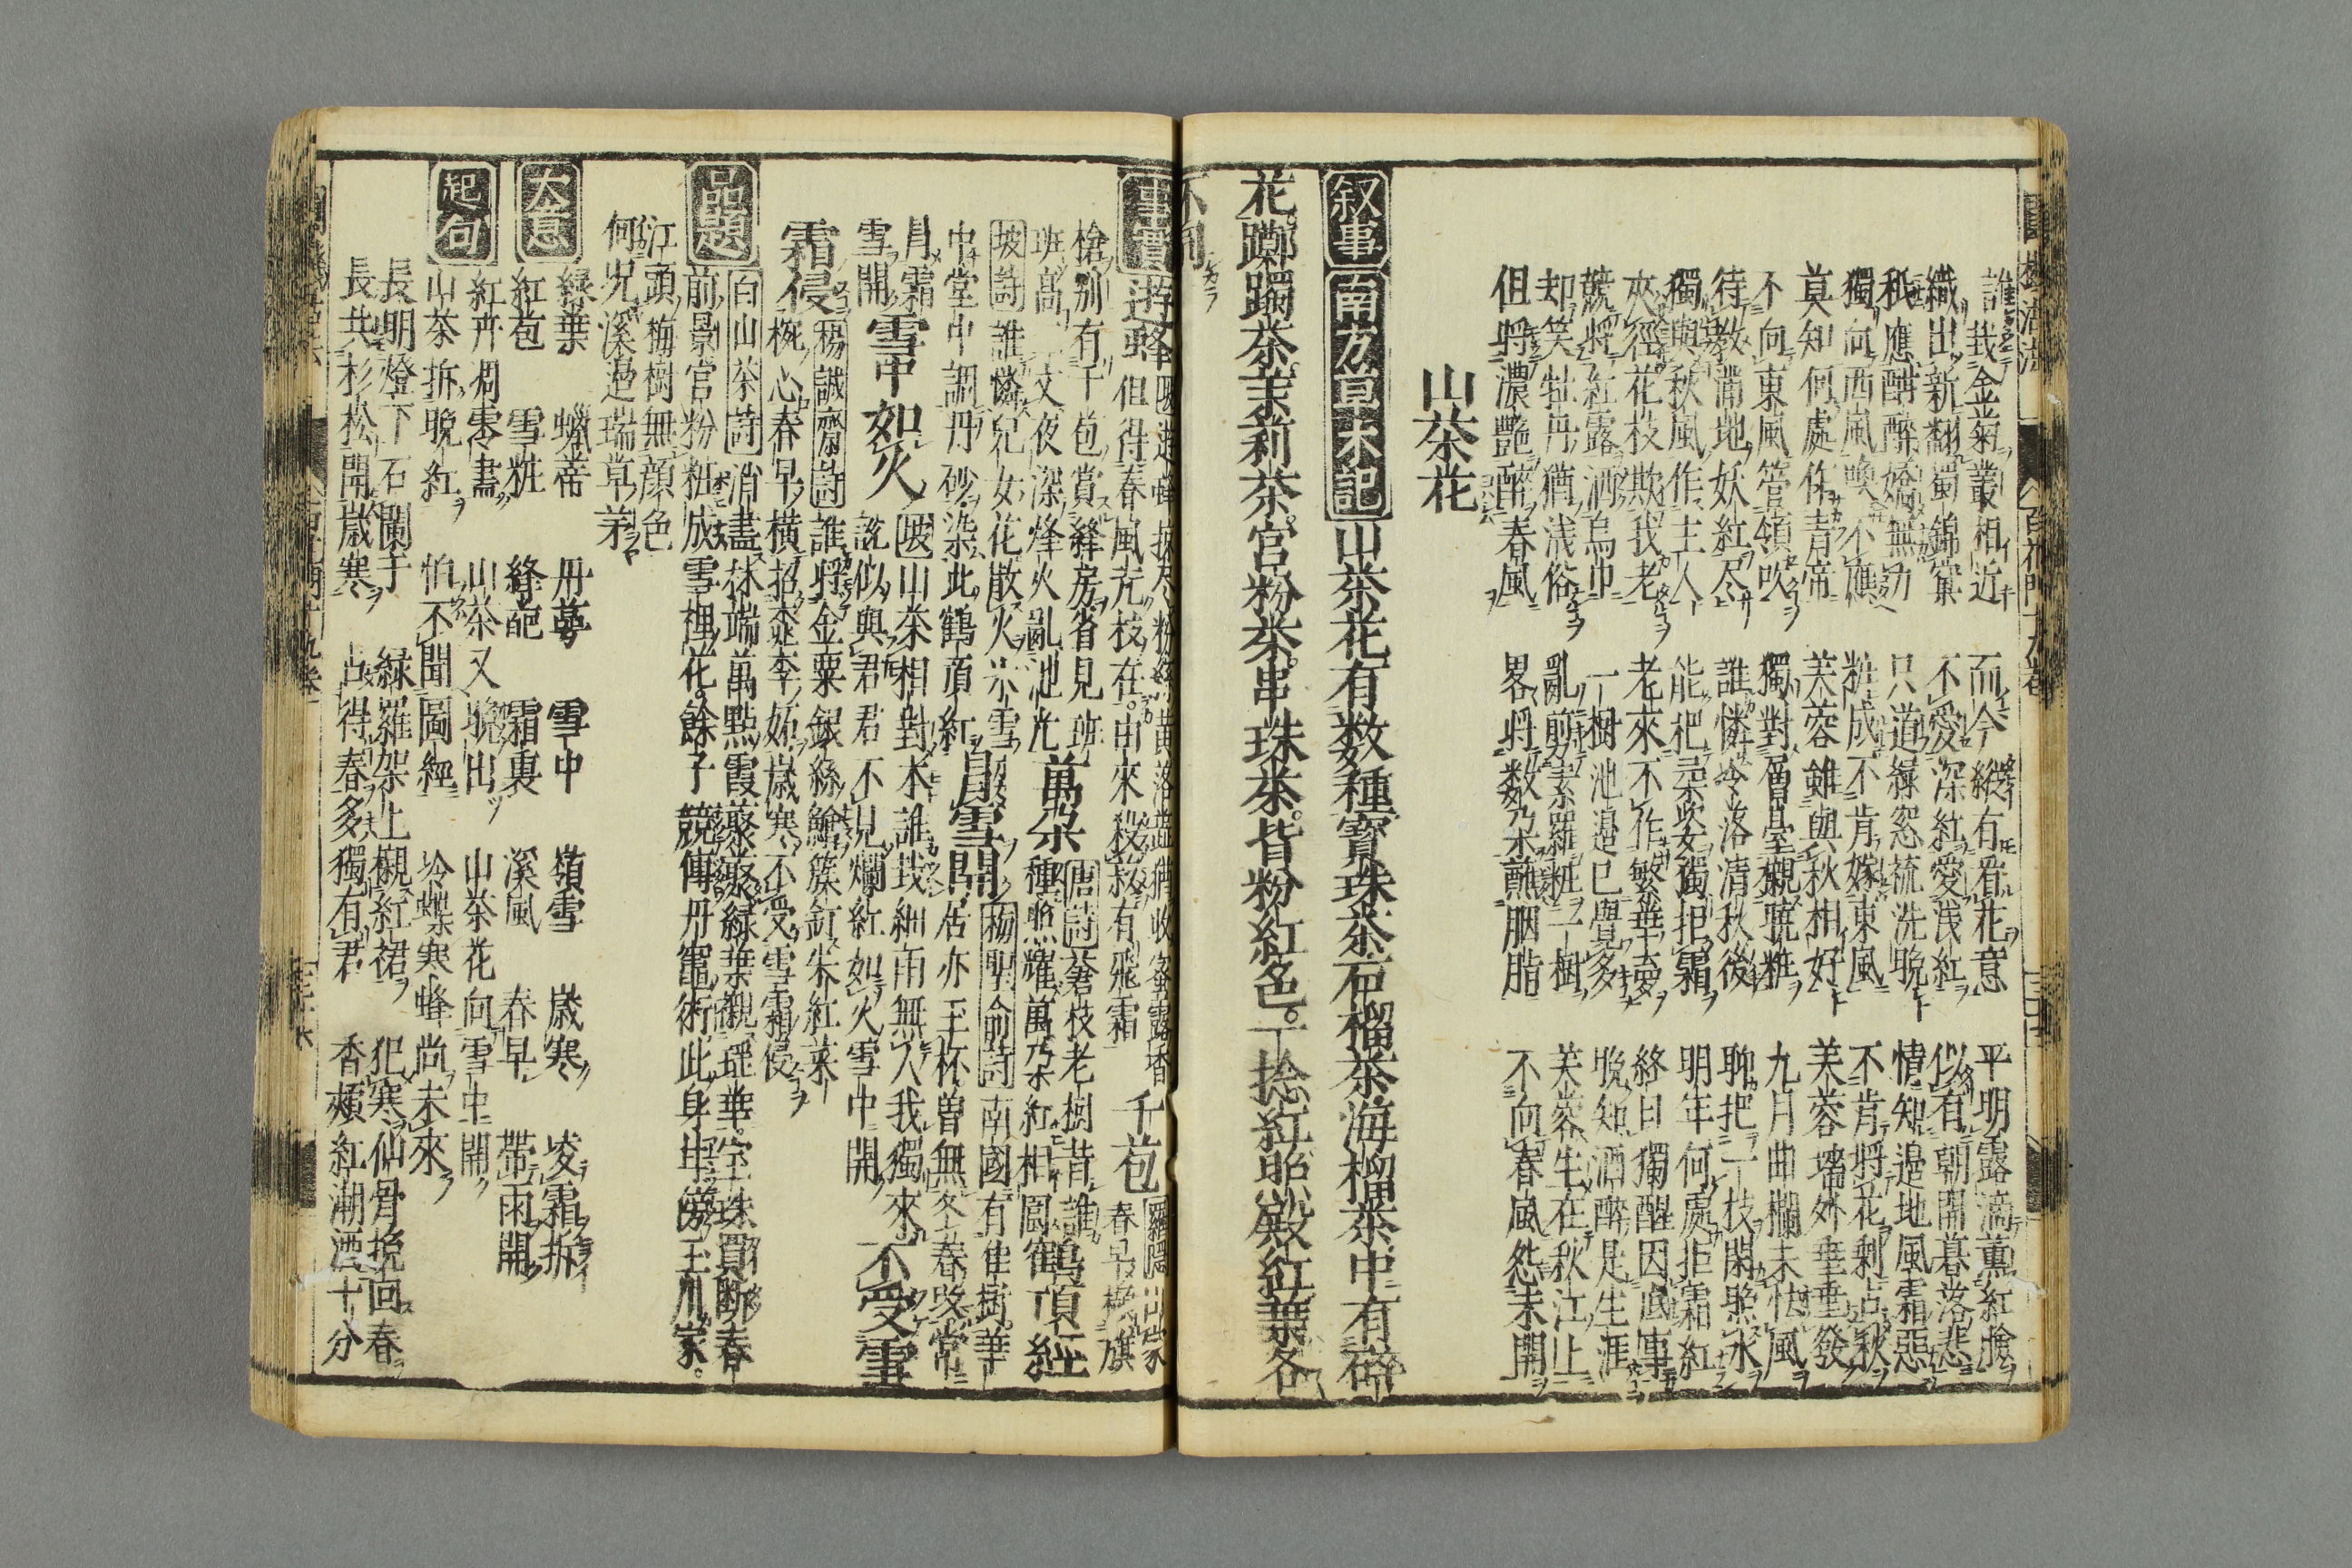 誰我金菊叢相近 而今縱有看花意 平明露滴薰紅臉
織出新翻蜀錦窠 不愛深紅愛浅紅 似有朝開暮落悲
秖應酣醉嬌無力 只道緑窓梳洗晚 情知邊地風霜惡
獨向西風喚不應 粧成不肯嫁東風 不肯將花剩占秋
莫知何處伴青帝 芙蓉雖與秋相好 芙蓉墻外垂垂發
不向東風管領吹 獨對層臺觀暁粧 九月曲欄未怯風
待教滿地妖紅尽 誰憐冷落清秋後 聊把一枝閑照水
獨與秋風作主人 能把柔姿獨拒霜 明年何處拒霜紅
夾徑花枝欺我老 老來不作繁華夢 終日獨醒因底事
競將紅露洒烏巾 一樹池邊已覺多 晩知酒醉是生涯
却笑牡丹猶浅俗 亂剪素羅粧一樹 芙蓉生在秋江上
但將濃艷醉春風 畧將数朶蘸胭脂 不向春風怨未開
山茶花
叙事 南方草木記 山茶花有数種寳珠茶石榴茶海榴茶中有碎
花躑躅茶茉莉茶宮粉茶串珠茶皆粉紅色一捻紅照殿紅葉各
不同
事實 遊蜂
但得春風尤枝在由來殺菽有飛霜 千苞 春早 旗
槍別有千苞賞絳房省見班 萬朶 唐詩 蒼枝老樹昔誰 鶴頂 經
班萬丈夜深烽火亂池光 種照耀萬朶紅相圍
坡詩 誰憐兒女花散火冰雪 南國有佳樹華
中堂中調丹砂染此鶴頂紅 冒雪開 居亦玉杯曽無冬春改常
冐霜雪開 雪中 坡 山茶相對本誰栽細雨無人我獨來 不受雪
如火 說似與君君不見爛紅如火雪中開
霜侵 楊誠齋詩 誰將金粟銀絲鱠簇釘朱紅菜
椀心春早横招桃李妬歳寒不受雪霜侵
品題 白山茶詩 消盡林端萬點霞叢叢緑葉襯瑶華宝珠買断春
前景宮粉粧成雪裡花餘子競傳丹竈術此身甘傍玉川家
江頭梅樹無顔色
何况溪邊瑞草芽
大意 緑葉 蠟蒂 丹萼 雪中 嶺雪 歳寒 凌霜拆
紅苞 雪粧 絳葩 霜裏 溪風 春早 帶雨開
起句 紅卉凋零盡 山茶又晩出 山茶花向雪中開
山茶拆晚紅 怕不聞圖經 冷蝶寒蜂尚未來
長明燈下石闌干 緑羅架上襯紅裙 犯寒仙骨挽回春
長共杉松閙歳寒 占得春多獨有君 香頰紅潮酒十分